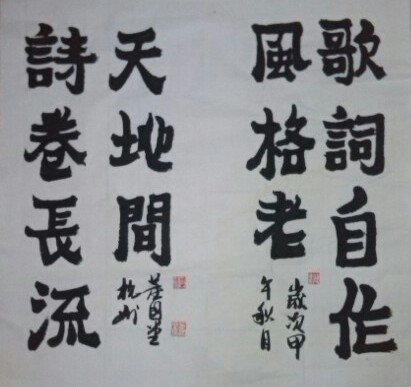 歌詞自作
風格老
歲次甲
午秋月
詩卷長流
天地間
杭州